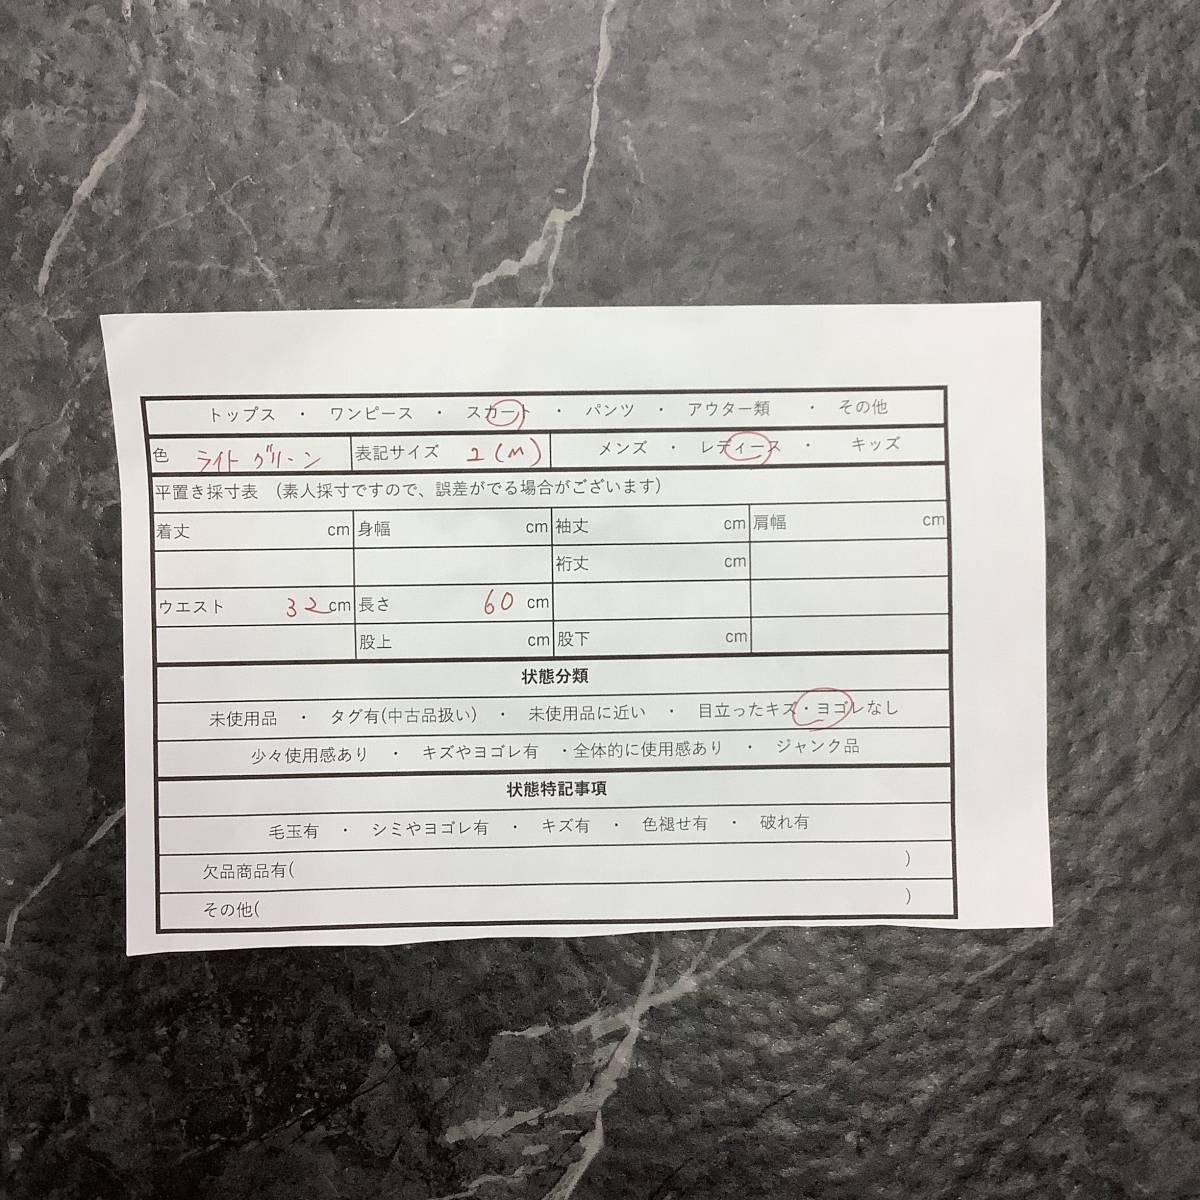 トップス ・ ワンピース ・ スカート ・ パンツ ・ アウター類 ・ その他
色 ライトグリーン 表記サイズ 2(M) メンズ ・ レディース ・ キッズ
平置き採寸表 (素人採寸ですので、誤差がでる場合がございます)
着丈 cm 身幅 cm 袖丈 cm 肩幅 cm
裄丈 cm
ウエスト 32cm 長さ 60 cm
股上 cm 股下 cm
状態分類
未使用品 ・ タグ有(中古品扱い) ・ 未使用品に近い ・ 目立ったキズ・ヨゴレなし
少々使用感あり ・ キズやヨゴレ有 ・全体的に使用感あり ・ ジャンク品
状態特記事項
毛玉有 ・ シミやヨゴレ有 ・ キズ有 ・ 色褪せ有 ・ 破れ有
欠品商品有( )
その他( )